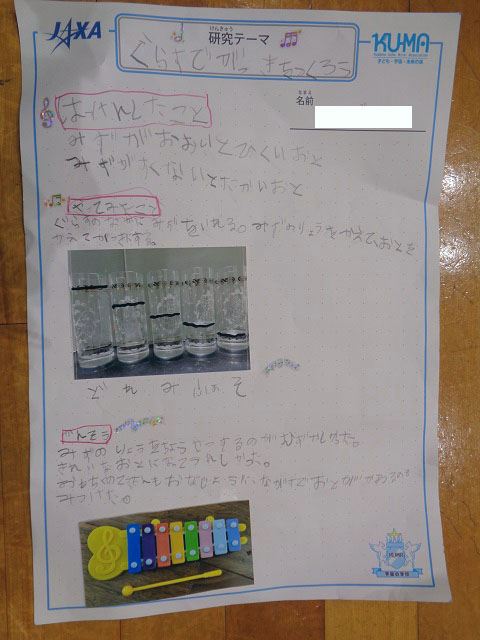 JAXA
けんきゅう
研究テーマ
ぐらすでがっきをつくろう
KUMA
子ども・宇宙・未来の会
なまえ
名前
はっけんしたこと
みずがおおいとひくいおと
みずがすくないとたかいおと
やってみたこと
ぐらすのなかにみずをいれる。みずのりょうをかえて、おとを
ど れ み ふぁ そ
かんそう
みずのりょうをちょうせつするのがむずかしかった。
きれいなおとになってうれしかった。
みつけた。
KUMA
宇宙の学校